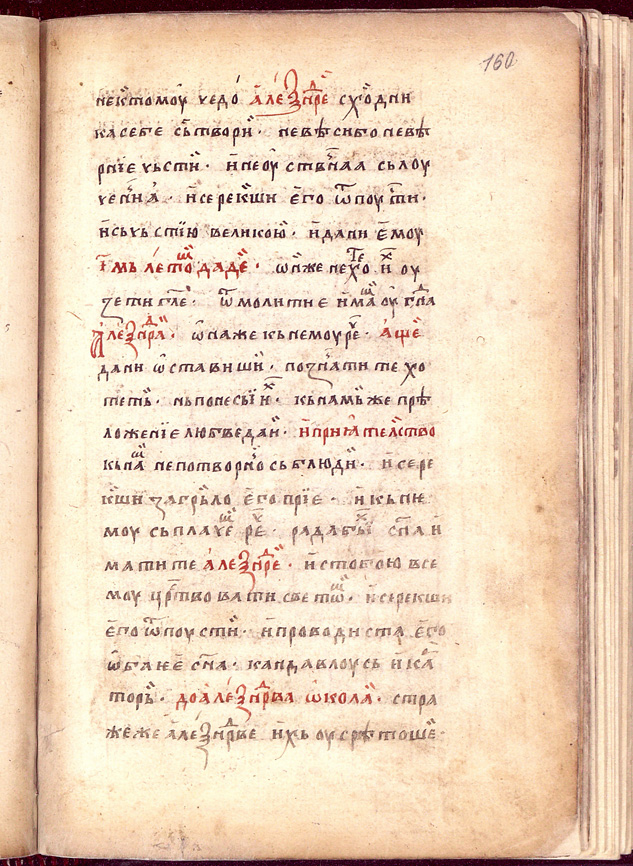 160
нектомоу чедо але́ѯндре сходни
ка себе сътвори · не вѣси бо невѣ
рние чьсти · и не оу ствнаа сь лоу
ченна · и се рекши его ѿпоусти ·
и сь чьстїю великою · и дани ему
і҃мь лето даде · ѡнже не хоте их оу
зети гле · ѿ молитне има оу гпⷣа
Алеѯндра · ѡнаже кь немоу реⷱ · аще
дани ѡставиши · познати те хо
теть · нь понеси их · кь намь же прѣ
ложенїе любве даи · и приꙗтелство
кь намь непотворно сьблюди · и се ре
кши загрьло его прїе · и кь не
моу сь плачемь реⷱ · рада бых сна и
мати те але́ѯндре · и с тобою все
моу црⷭтвовати свету · и се рекши
его ѿпоусти · и проводиста его
ѡба не е сна · кандавлоусь и ка
торь · до але́ѯндрва ѡкола · стра
же же але́ѯндрве ихь оусрѣтоше ·